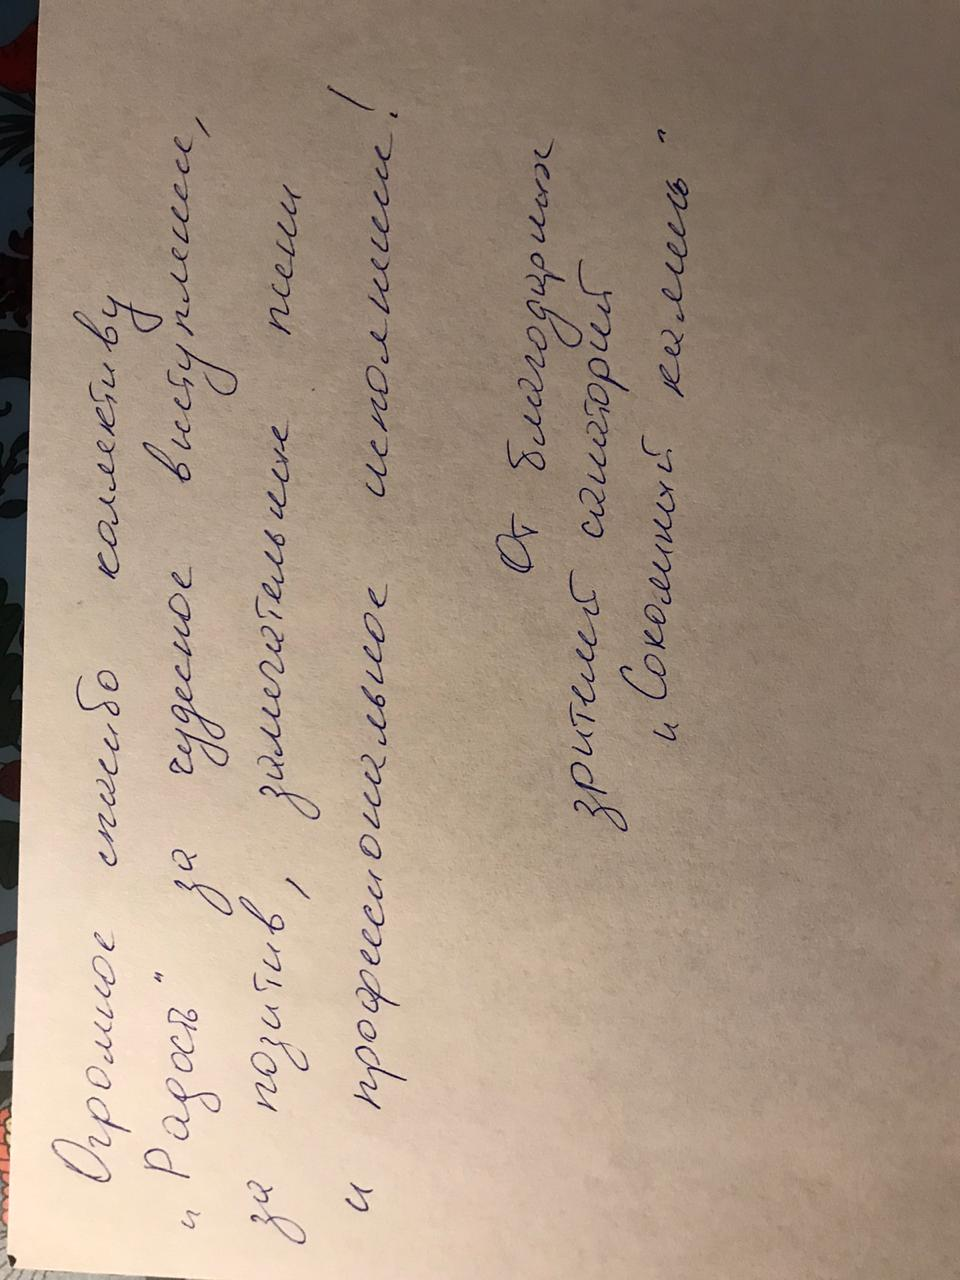 Огромное спасибо коллективу
„Радость" за чудесное выступление,
за позитив, замечательные песни
и профессиональное исполнение!
От благодарных
зрителей санаторий
„Сокольный камень"